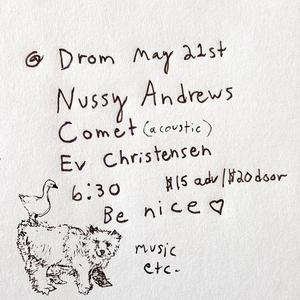 @ Drom May 21st
Nussy Andrews
Comet (acoustic)
Ev Christensen
6:30 $15 adv/$20 door
Be nice ♡
music
etc.